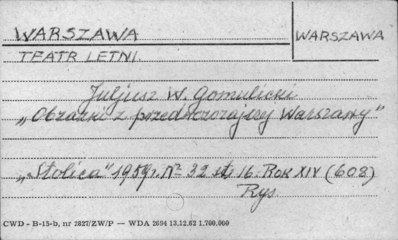 WARSZAWA
WARSZAWA
TEATR LETNI.
Juljusz W. Gomulicki
„Obrazki z przedwczorajszej Warszawy"
„Stolica" 1959 r. Nr 32 str. 16. ROK XIV (608)
Rys.
CWD - B-15-b, nr 2827/ZW/P — WDA 2694 13.12.62 1.700.000